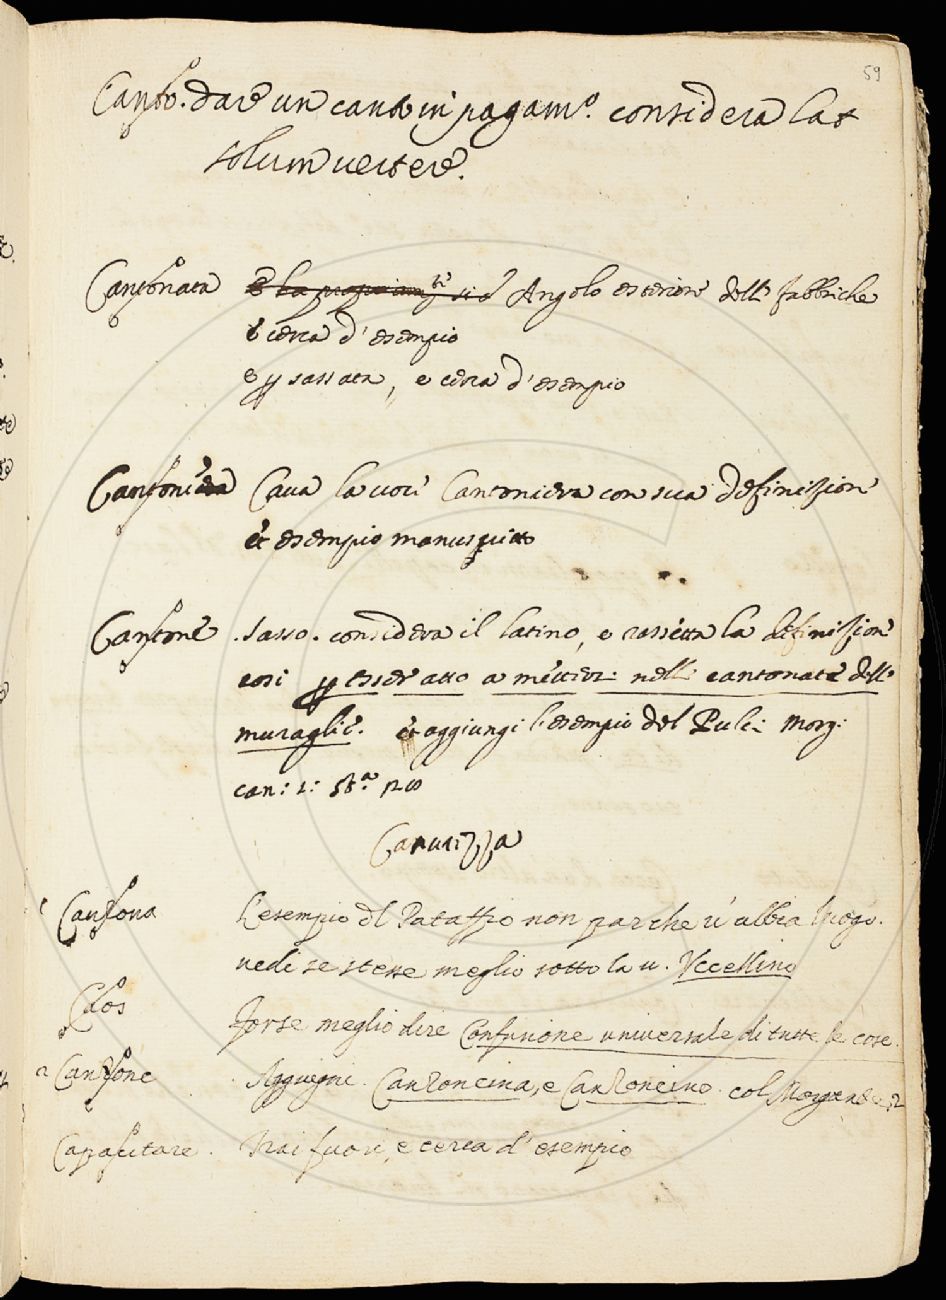 59
Canto. dare un canto in pagam.o considera lat
solum vertere.
Cantonata Angolo esteriore delle fabbriche
e cerca d'esempio
e p sassata, e cerca d'esempio
Cantoniera Cava la voce Cantoniera con sua definizione
et esempio manuscritto
Cantone .sasso. considera il latino, e rassetta la definizione
cosi p esser atto a mettere nelle cantonate delle
muraglie. et aggiungi l'esempio del Pulci Morg:
can: 1: St.a
Canutezza
Canzona L'esempio dl Pataffio non par che v'abbia luogo.
vedi se stesse meglio sotto la v. Vccellino
Caos Forse meglio dire Confusione universale di tutte le cose.
Canzone Aggiugni Canzoncina, e Canzoncino. col
Capacitare. Trai fuori, e cerca d'esempio